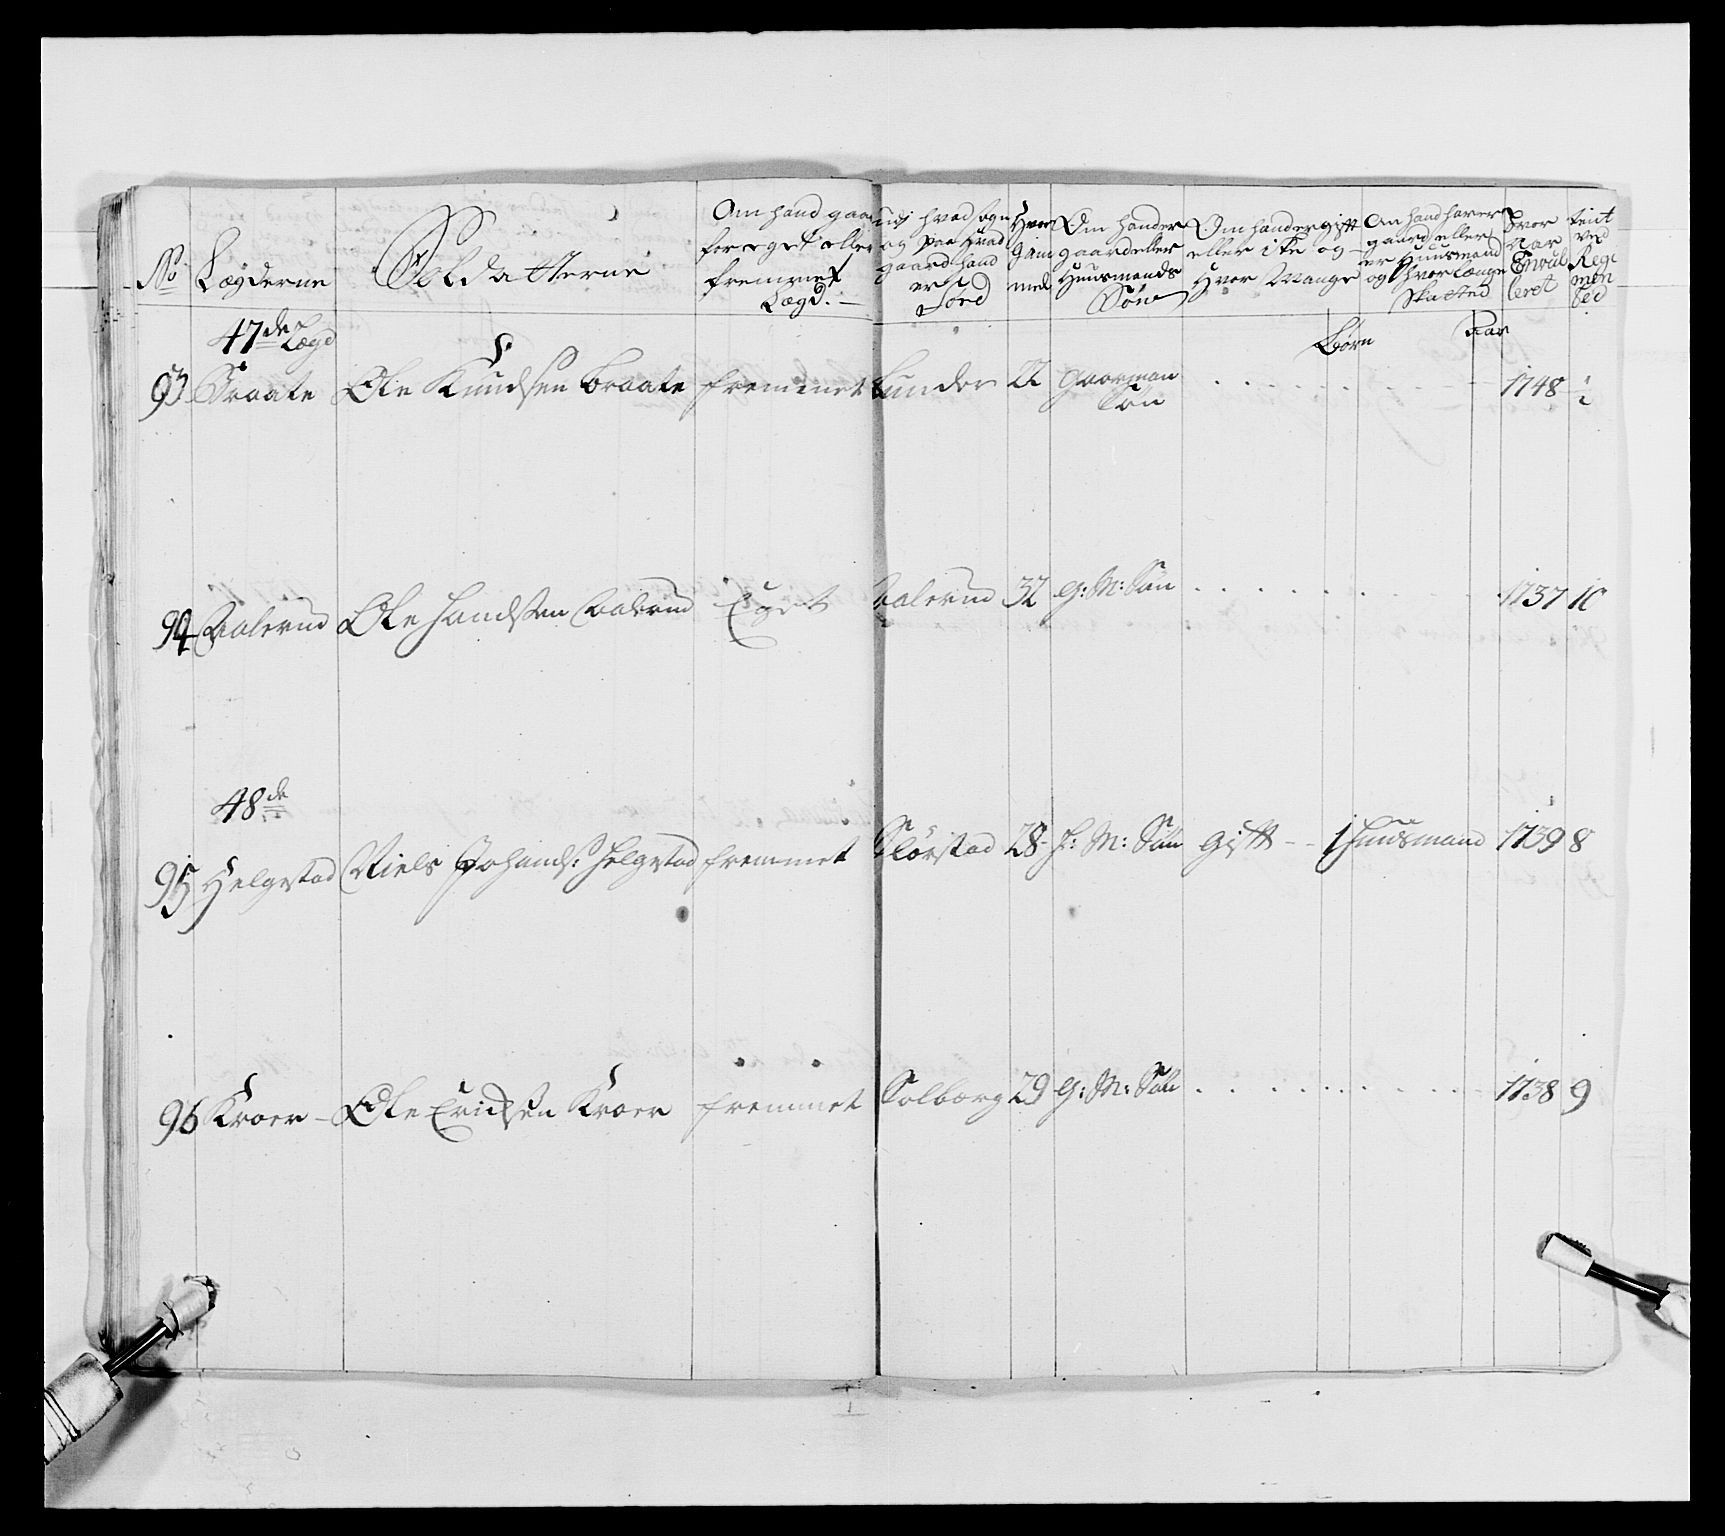 No
Lægderne
Soldatterne
Om hand gaar
for eget eller
fremmet
Lægd. —
udj hvad sogn
og paa hvad
gaard hand
er
Föed
Hvor
gam
mel
Om hand er
gaard eller
Huusmands
Søn
Om hand er gift
eller ike og
Hvor Mange
Om hand haver
gaard eller
er Huusmand
og hvor længe
Hvor
Aar
Enroul
leret
tient
ved
Regi
men
ted
47de Lægd
Børn
Aar
93 Braate Ole Knudsen Braate fremmet Lunder 22 gaarman
Søn
1748 1/2
94 Aalerud Ole Handsen Aalerud Eget Aalerud 32 G: M: Søn 1737 10
48de
95 Helgestad Niels Johands: Helgestad fremmet Slörstad 28 H: M: Søn gift - - 1 Huusmand 1739 8
96 Kroer - Ole Ericksen Kroer fremmet Solberg 29 G: M: Søn 1738 9